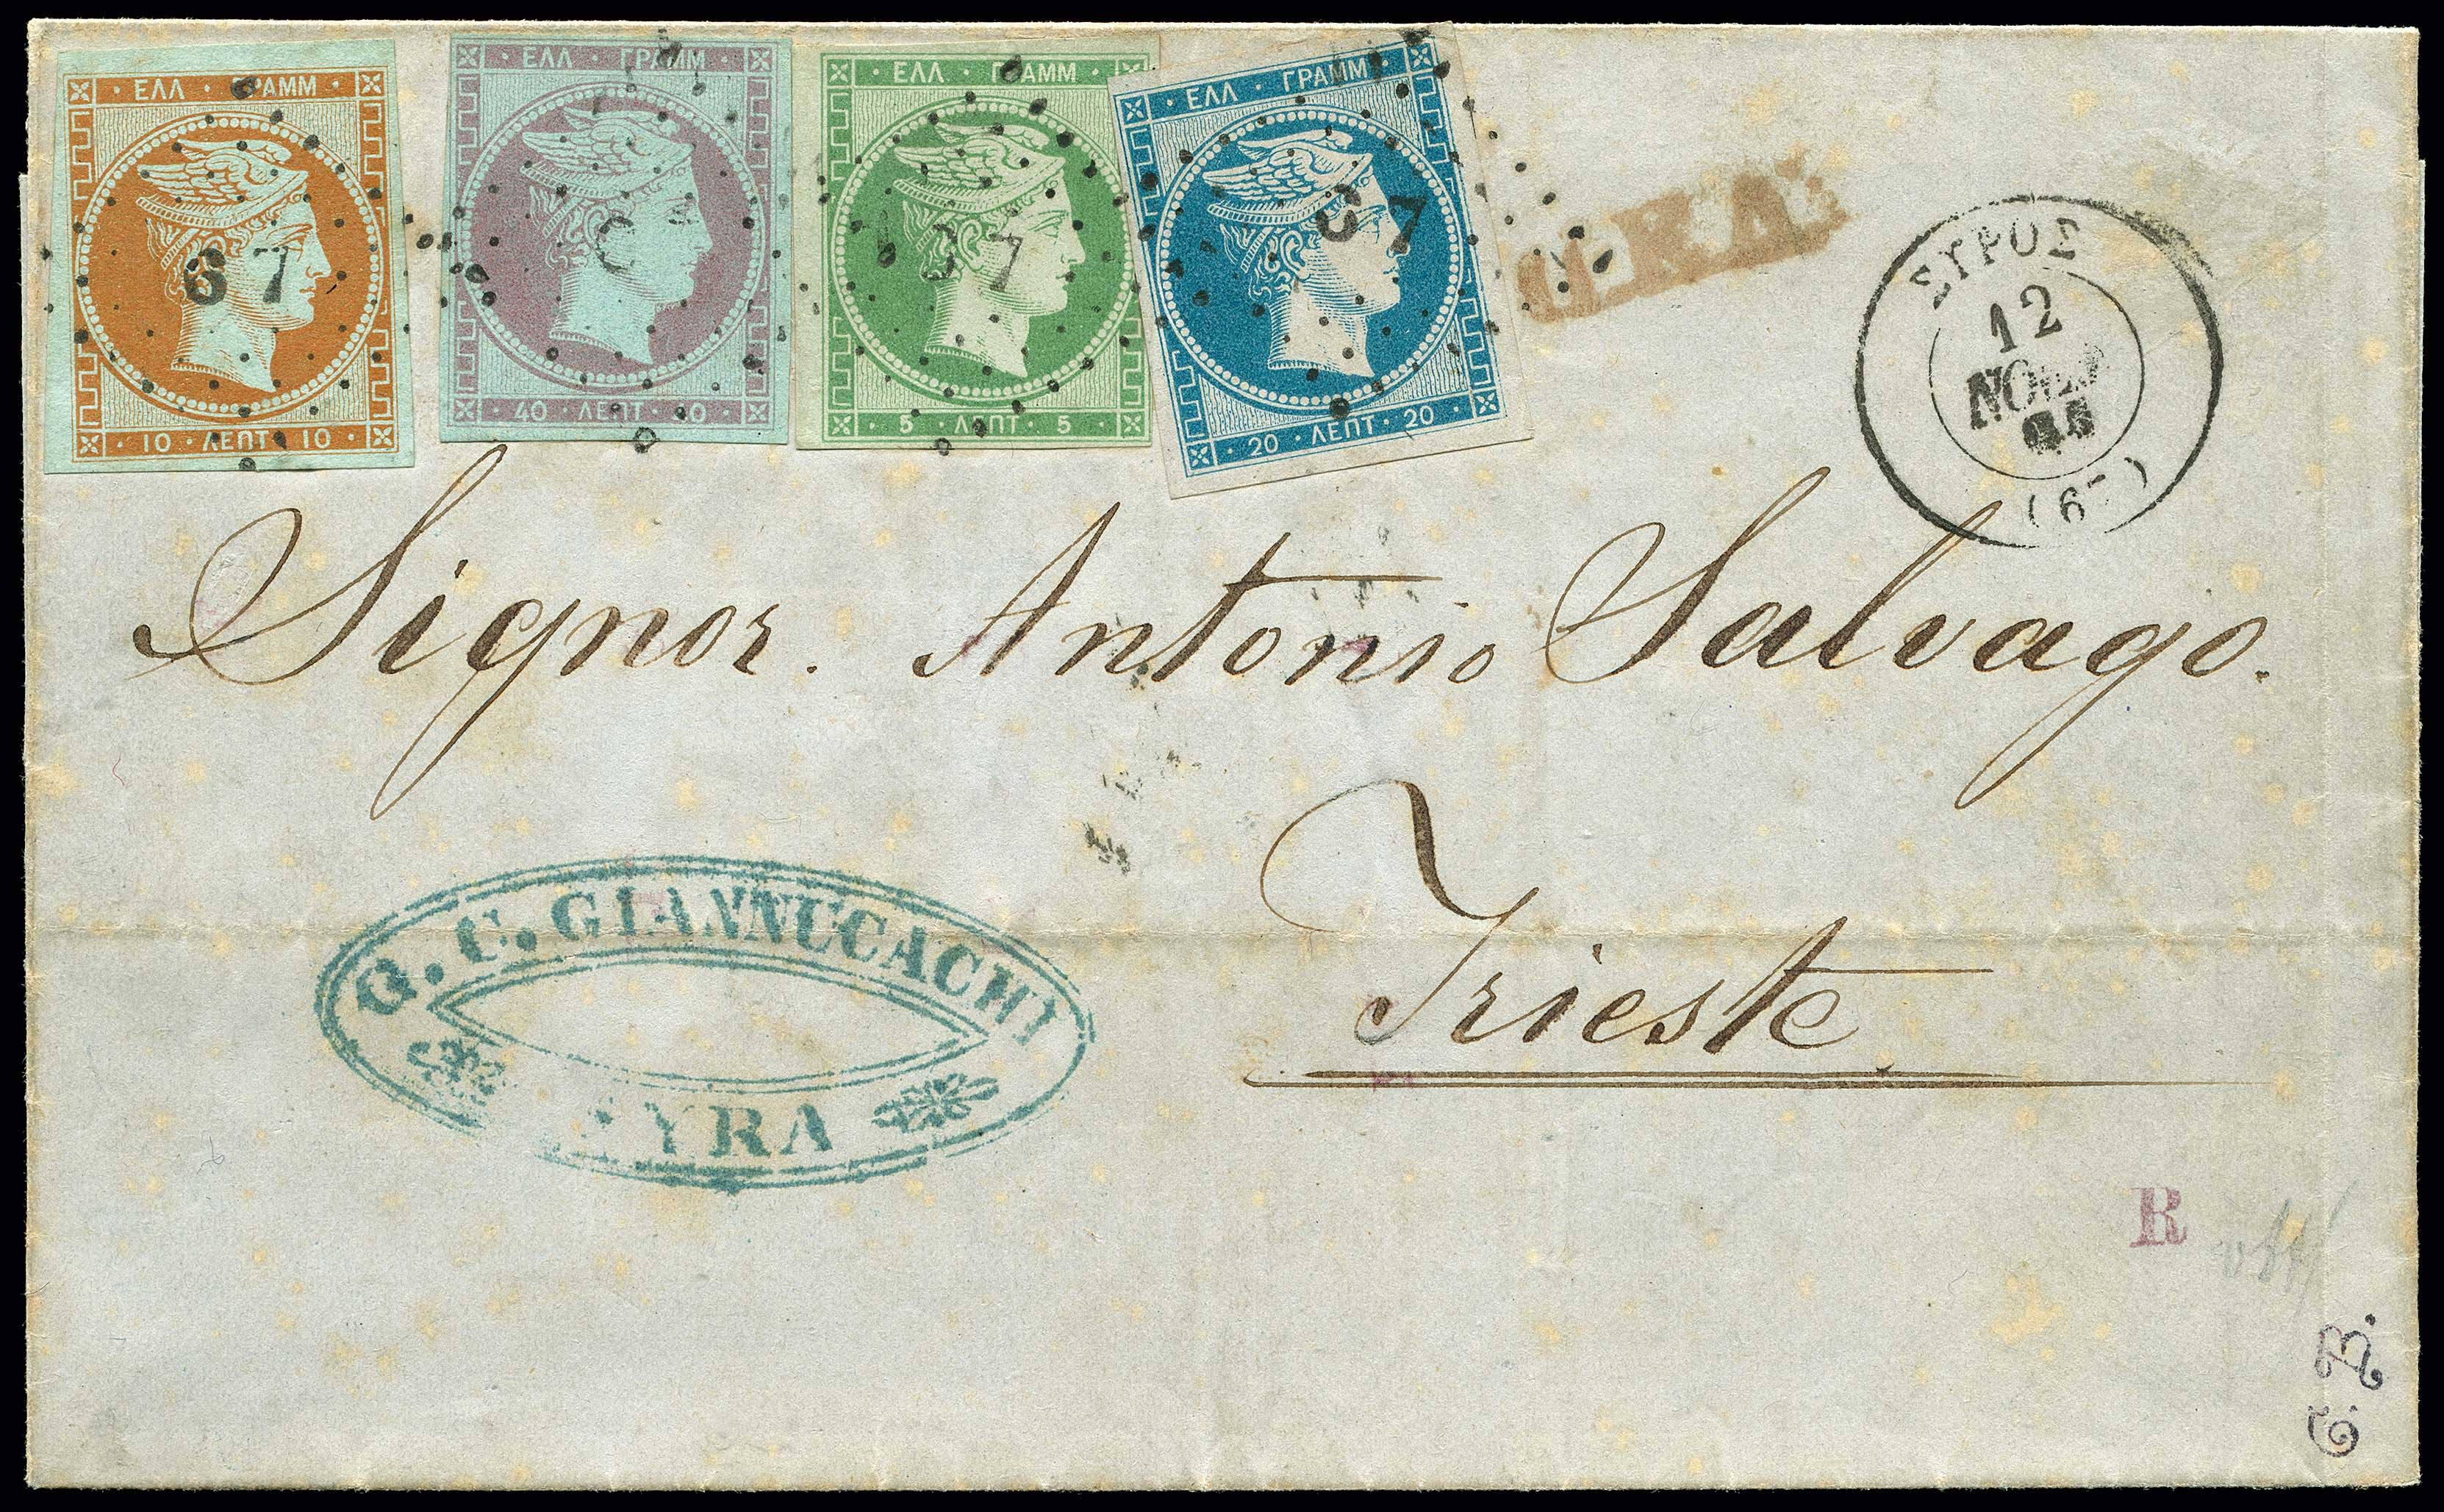 ΕΛΛ · ΓΡΑΜΜ
67
10 · ΛΕΠΤ · 10
ΕΛΛ · ΓΡΑΜΜ
40 · ΛΕΠΤ · 40
ΕΛΛ · ΓΡΑΜΜ
67
5 · ΛΕΠΤ · 5
ΕΛΛ · ΓΡΑΜΜ
67
20 · ΛΕΠΤ · 20
ΣΥΡΟΣ
12
(67)
Signor. Antonio Salvago.
Trieste
G. C. GIANNUCACHI
SYRA
R